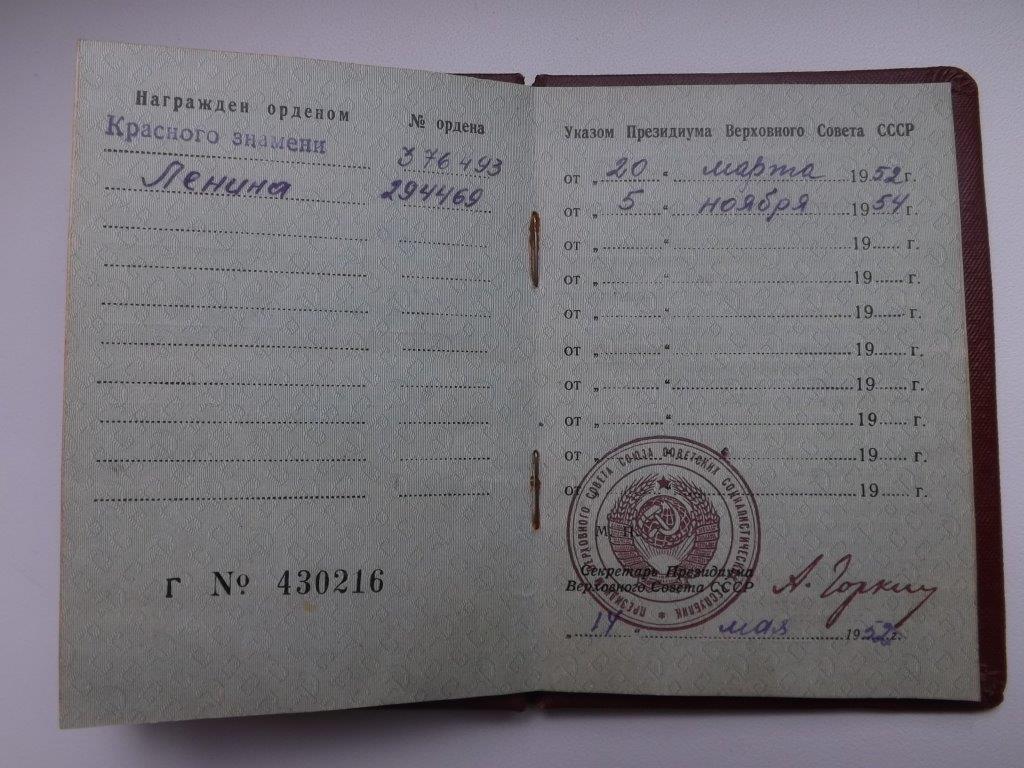 Награжден орденом
№ ордена
Красного знамени
376493
Ленина
294469
Г № 430216
Указом Президиума Верховного Совета СССР
от „ 20 “ марта 1952 г.
от „ 5 “ ноября 1954 г.
от „ “ 19 г.
от „ “ 19 г.
от „ “ 19 г.
от „ “ 19 г.
от „ “ 19 г.
от „ “ 19 г.
от „ “ 19 г.
от 19 г.
М. П.
ВЕРХОВНОГО СОВЕТА СОЮЗА СОВЕТСКИХ СОЦИАЛИСТИЧЕСКИХ РЕСПУБЛИК
Секретарь Президиума
Верховного Совета СССР
А. Горкин
„ 14 “ мая 1952 г.